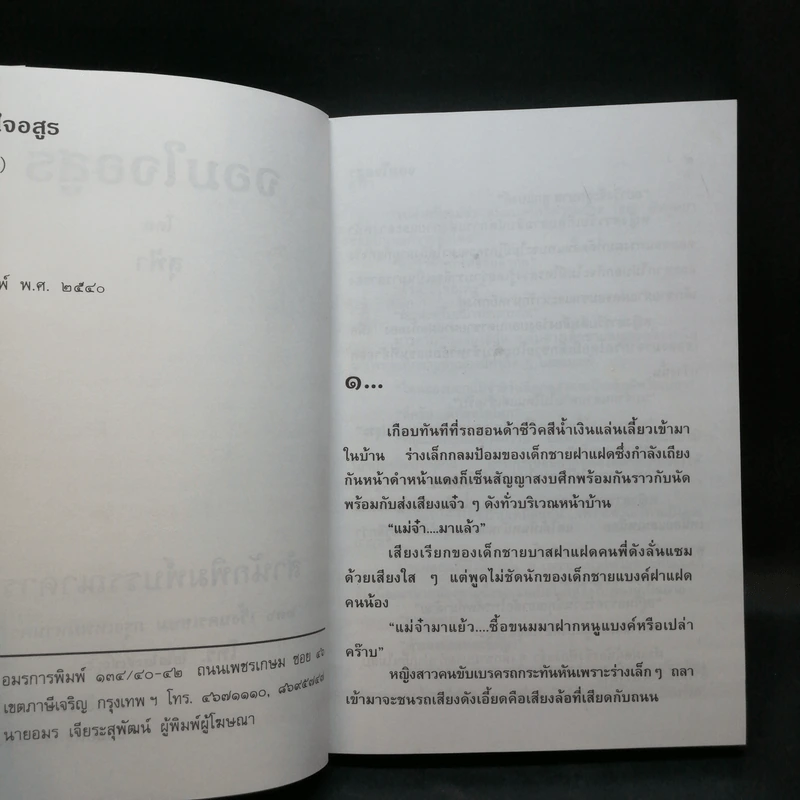 ใจอสูร
)
พ์ พ.ศ. ๒๕๔๐
อมรการพิมพ์ ๑๓๔/๔๐-๔๒ ถนนเพชรเกษม ซอย ๔๖
เขตภาษีเจริญ กรุงเทพฯ โทร. ๔๖๗๑๑๑๐, ๘๖๙๕๗๔๗
นายอมร เจียระสุพัฒน์ ผู้พิมพ์ผู้โฆษณา
๑...
เกือบทันทีที่รถฮอนด้าซีวิคสีน้ำเงินแล่นเลี้ยวเข้ามา
ในบ้าน ร่างเล็กกลมป้อมของเด็กชายฝาแฝดซึ่งกำลังเถียง
กันหน้าดำหน้าแดงก็เซ็นสัญญาสงบศึกพร้อมกันราวกับนัด
พร้อมกับส่งเสียงแจ๋ว ๆ ดังทั่วบริเวณหน้าบ้าน
“แม่จ๋า....มาแล้ว”
เสียงเรียกของเด็กชายบาสฝาแฝดคนพี่ดังลั่นแซม
ด้วยเสียงใส ๆ แต่พูดไม่ชัดนักของเด็กชายแบงค์ฝาแฝด
คนน้อง
“แม่จ๋ามาแย้ว....ซื้อขนมมาฝากหนูแบงค์หรือเปล่า
คร๊าบ”
หญิงสาวคนขับเบรครถกระทันหันเพราะร่างเล็กๆ ถลา
เข้ามาจะชนรถเสียงดังเอี้ยดคือเสียงล้อที่เสียดกับถนน